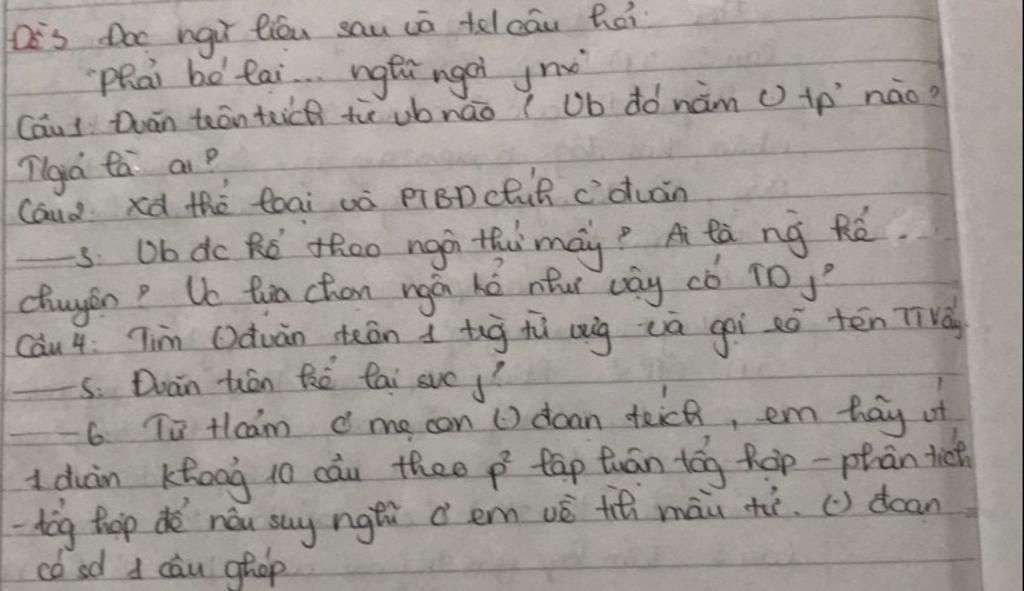 Đề 3 Đọc ngữ liệu sau và tlcl câu hỏi:
"Phải bé lại... nghĩ ngợi j nx"
Câu 1: Đvăn trên trích từ vb nào? Vb đó nằm () tp' nào?
Tlgiả là ai?
Câu 2. Xđ thể loại và PTBĐ chíh c' đvăn
—— 3: Vb đc kể theo ngôi thứ mấy? Ai là ng kể
chuyện? Vc lựa chọn ngôi kể như vậy có TD j?
Câu 4: Tìm () đvăn trên 1 trg từ vựg và gọi rõ tên TTV đấy
—— 5: Đvăn trên kể lại sv j?
—— 6. Từ t/cảm c' mẹ con () đoạn trích, em hãy vt
1 đvăn khoảg 10 câu theo p² lập luận tổg hợp - phân tích
- tổg hợp để nêu suy nghĩ c' em về tìh mẫu tử. () đoạn
có sd 1 câu ghép